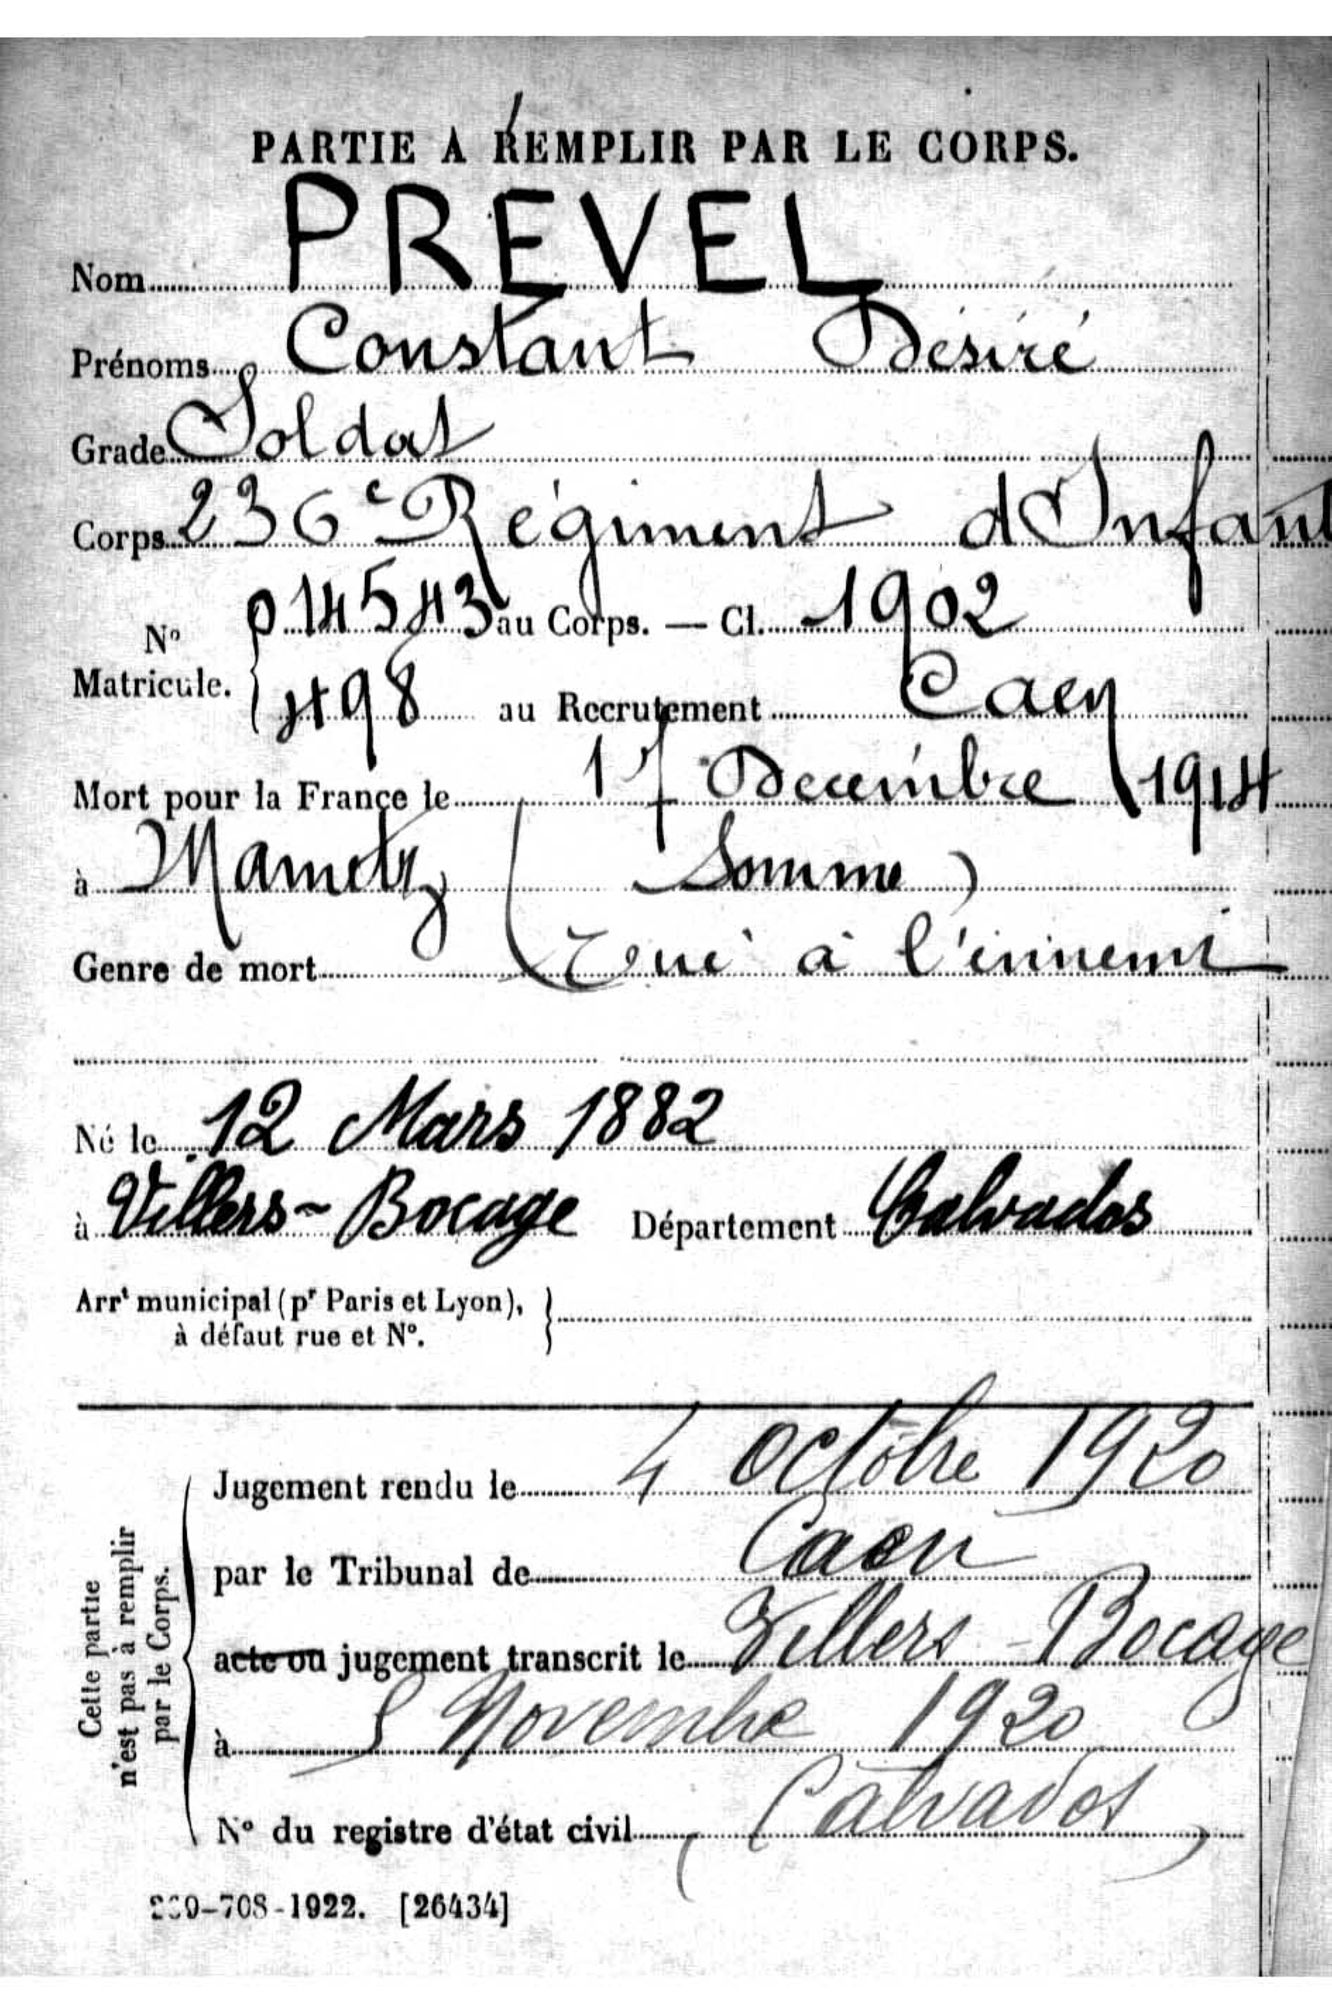 PARTIE A REMPLIR PAR LE CORPS.
Nom PREVEL
Prénoms Constant Désiré
Grade Soldat
Corps 236e Régiment d'Infant
No Matricule. { 014543 au Corps. — Cl. 1902
498 au Recrutement Caen
Mort pour la France le 17 Décembre 1914
à Mametz (Somme)
Genre de mort Tué à l'ennemi
Né le 12 Mars 1882
à Villers-Bocage Département Calvados
Arrt municipal (pr Paris et Lyon), }
à défaut rue et No.
Cette partie
n'est pas à remplir
par le Corps.
Jugement rendu le 4 Octobre 1920
par le Tribunal de Caen
acte ou jugement transcrit le Villers-Bocage
à Novembre 1920
No du registre d'état civil (Calvados)
-708-1922. [26434]